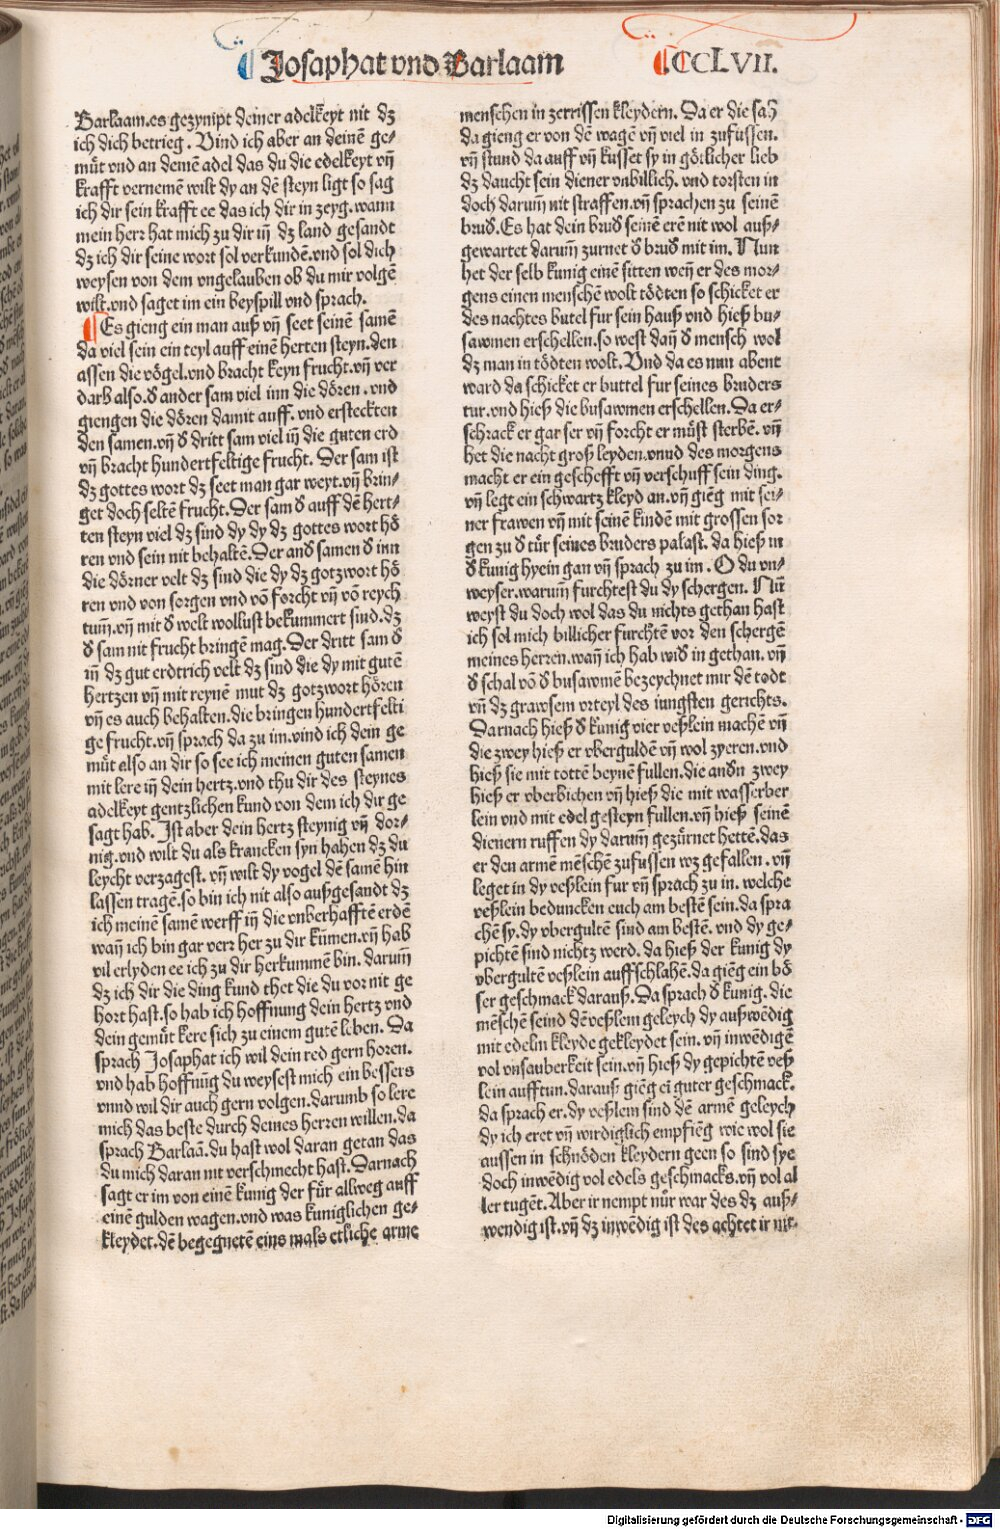 Josaphat vnd Barlaam .CCLVII.
Barlaam.es gezynipt deiner adelkeyt nit dz
ich dich betrieg. Vind ich aber an deinē ge⸗
müt vnd an deinē adel das du die edelkeyt vñ
krafft vernemē wilt dy an dē steyn ligt so sag
ich dir sein krafft ee das ich dir in zeyg.wann
mein herr hat mich zu dir iñ dz land gesandt
dz ich dir seine wort sol verkundē.vnd sol dich
weysen von dem vngelauben ob du mir volgē
wilt.vnd saget im ein beyspill vnd sprach.
¶Es gieng ein man auß vñ seet seinē samē
da viel sein ein teyl auff einē herten steyn.den
assen die vögel.vnd bracht keyn frucht.vñ ver
darb also.ď ander sam viel inn die dören.vnd
giengen die dören damit auff.vnd ersteckten
den samen.vñ ď dritt sam viel iñ die guten erd
vñ bracht hundertfeltige frucht. Der sam ist
dz gottes wort dz seet man gar weyt.vñ brin⸗
get doch seltē frucht.Der sam ď auff dē hert⸗
ten steyn viel dz sind dy dy dz gottes wort hö
ren vnd sein nit behaltē.Der anď samen ď inn
die dörner velt dz sind die dy dz gotzwort hö
ren vnd von sorgen vnd vō forcht vñ vō reych
tum̄.vñ mit ď welt wollust bekummert sind.dz
ď sam nit frucht bringē mag.Der dritt sam ď
iñ dz gut erdtrich velt dz sind die dy mit gutē
hertzen vñ mit reynē mut dz gotzwort hören
vñ es auch behalten.die bringen hundertfelti
ge frucht.vñ sprach da zu im.vind ich dein ge
müt also an dir so see ich meinen guten samen
mit lere iñ dein hertz.vnd thu dir des steynes
adelkeyt gentzlichen kund von dem ich dir ge
sagt hab. Ist aber dein hertz steynig vñ dor⸗
nig.vnd wilt du als krancken syn haben dz du
leycht verzagest. vñ wilt dy vogel dē samē hin
lassen tragē.so bin ich nit also außgesandt dz
ich meinē samē werff iñ die vnberhafftē erdē
wañ ich bin gar verr her zu dir kümen.vñ hab
vil erlyden ee ich zu dir herkummē bin. darum̄
dz ich dir die ding kund thet die du vor nit ge
hort hast.so hab ich hoffnung dein hertz vnd
dein gemüt kere sich zu einem gutē leben. Da
sprach Josaphat ich wil dein red gern horen.
vnd hab hoffnūg du weysest mich ein bessers
vnnd wil dir auch gern volgen.darumb so lere
mich das beste durch deines herren willen.da
sprach Barlaā.du hast wol daran getan das
du mich daran nit verschmecht hast.Darnach
sagt er im von einē kunig der für allweg auff
einē gulden wagen.vnd was kuniglichen ge⸗
kleydet.dē begegnetē eins mals etliche arme
menschen in zerrissen kleydern. Da er die sah
da gieng er von dē wagē vñ viel in zufussen.
vñ stund da auff vñ kusset sy in götlicher lieb
dz daucht sein diener vnbillich. vnd torsten in
doch darum̄ nit straffen.vñ sprachen zu seinē
bruď.Es hat dein bruď seinē erē nit wol auß⸗
gewartet darum̄ zurnet ď bruď mit im. Nun
het der selb kunig einē sitten weñ er des mor⸗
gens einen menschē wolt tödten so schicket er
des nachtes butel fur sein hauß vnd hieß bu⸗
sawmen erschellen.so west dañ ď mensch wol
dz man in tödten wolt.Vnd da es nun abent
ward da schicket er buttel fur seines bruders
tur.vnd hieß die busawmen erschellen.Da er⸗
schrack er gar ser vñ forcht er müst sterbē. vñ
het die nacht groß leyden.vnnd des morgens
macht er ein geschefft vñ verschuff sein ding.
vñ legt ein schwartz kleyd an.vñ giēg mit sei⸗
ner frawen vñ mit seinē kindē mit grossen sor
gen zu ď tür seines bruders palast. da hieß in
ď kunig hyein gan vñ sprach zu im. O du vn⸗
weyser.warum̄ furchtest du dy schergen. Nū
weyst du doch wol das du nichts gethan hast
ich sol mich billicher furchtē vor den schergē
meines herren.wañ ich hab wiď in gethan. vñ
ď schal vō ď busawmē bezeychnet mir dē todt
vñ dz grawsem vrteyl des iungsten gerichts.
Darnach hieß ď kunig vier veßlein machē vñ
die zwey hieß er vberguldē vñ wol zyeren.vnd
hieß sie mit tottē beynē fullen.die anďn zwey
hieß er vberbichen vñ hieß die mit wasserber
lein vnd mit edel gesteyn fullen.vñ hieß seinē
dienern ruffen dy darum̄ gezürnet hettē.das
er den armē mēschē zufussen wz gefallen. vñ
leget in dy veßlein fur vñ sprach zu in. welche
veßlein beduncken euch am bestē sein.da spra
chē sy.dy vbergultē sind am bestē. vnd dy ge⸗
pichtē sind nichtz werd. da hieß der kunig dy
vbergultē veßlein auffschlahē.da giēg ein bö
ser geschmack darauß.Da sprach ď kunig. die
mēschē seind dē veßlem geleych dy außwēdig
mit edeln kleyde gekleydet sein. vñ inwēdigē
vol vnsauberkeit sein.vñ hieß dy gepichtē veß
lein aufftun.darauß giēg ei guter geschmack.
da sprach er.dy veßlem sind dē armē geleych
dy ich eret vñ wirdiglich empfiēg wie wol sie
aussen in schnöden kleydern geen so sind sye
doch inwēdig vol edels geschmacks.vñ vol al
ler tugēt.Aber ir nempt nür war des dz auß⸗
wendig ist.vñ dz inwēdig ist des achtet ir nit.
Digitalisierung gefördert durch die Deutsche Forschungsgemeinschaft - DFG